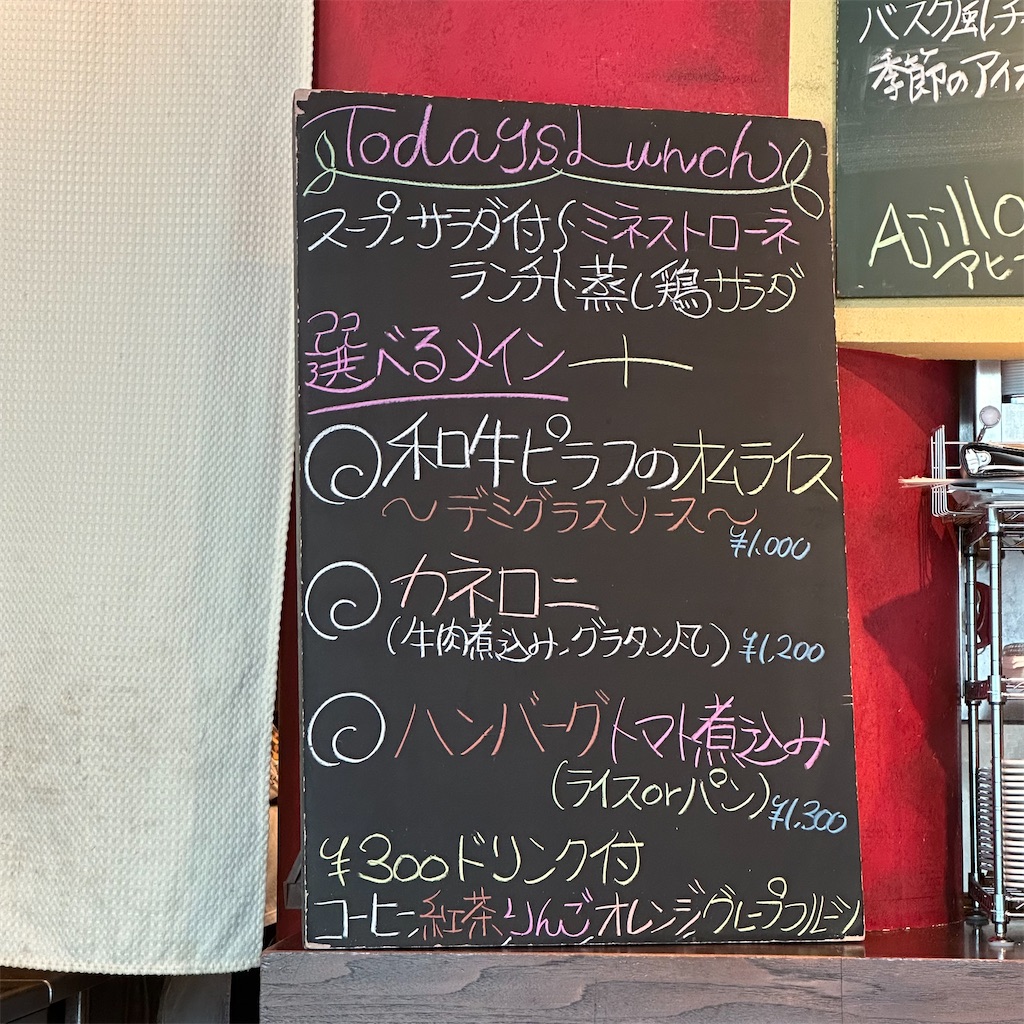 Todays Lunch
スープ、サラダ付〜ミネストローネ
ランチ、蒸し鶏サラダ
選べるメイン＋
和牛ピラフのオムライス
〜デミグラスソース〜
¥1.000
カネロニ
(牛肉煮込み、グラタン風) ¥1,200
ハンバーグトマト煮込み
(ライスorパン) ¥1,300
¥300ドリンク付
コーヒー、紅茶りんごオレンジグレープフルーツ
バスク風チ
季節のアイ
Ajillo
アヒー